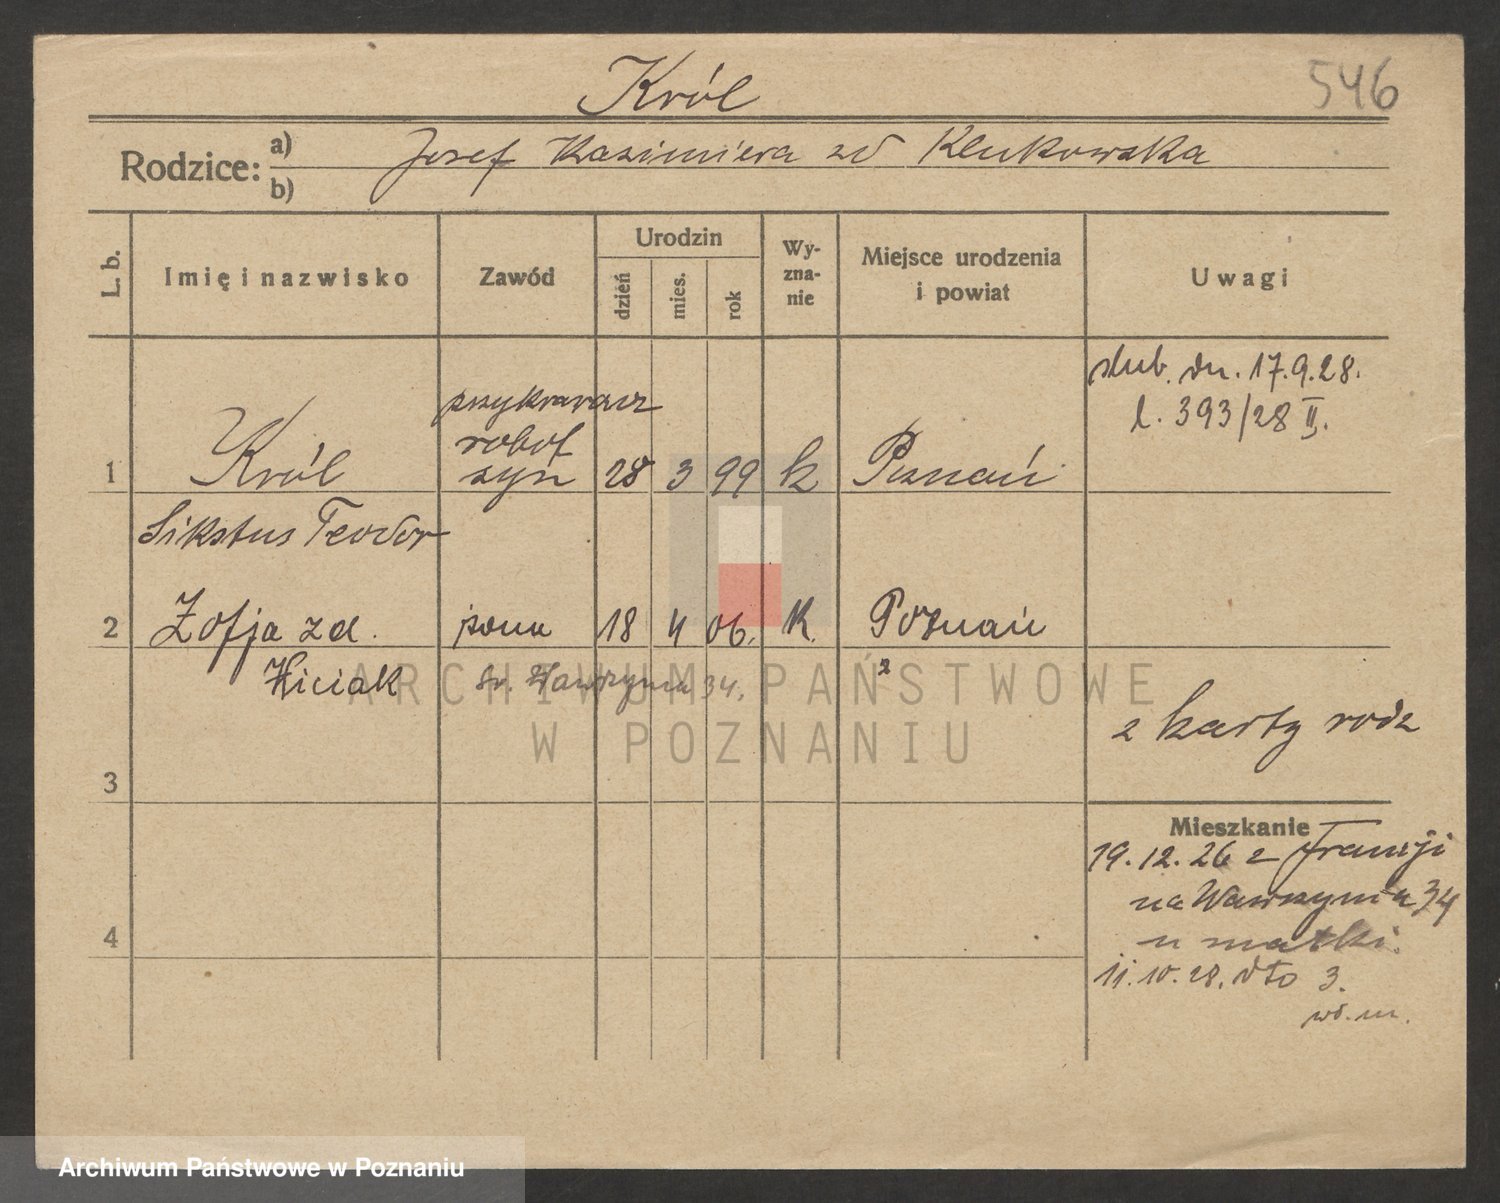 546
Król
Rodzice: a) Josef Kazimiera zd Klukowska
b)
L. b. Imię i nazwisko Zawód Urodzin dzień mies. rok Wyznanie Miejsce urodzenia i powiat Uwagi
ślub. dn. 17.9.28.
l. 393/28 II.
przykrawacz
robot
syn
1 Król 28 3 99 k Poznań
Sikstus Teodor
2 Zofja zd. żona 18 4 06. k. Poznań
Wiciak św. Wawrzyńca 34.
z karty rodz
3
Mieszkanie
19.12.26 z Francji
na Wawrzyńca 34
u matki.
4
11.10.28. dto 3.
ARCHIWUM PAŃSTWOWE
W POZNANIU
Archiwum Państwowe w Poznaniu